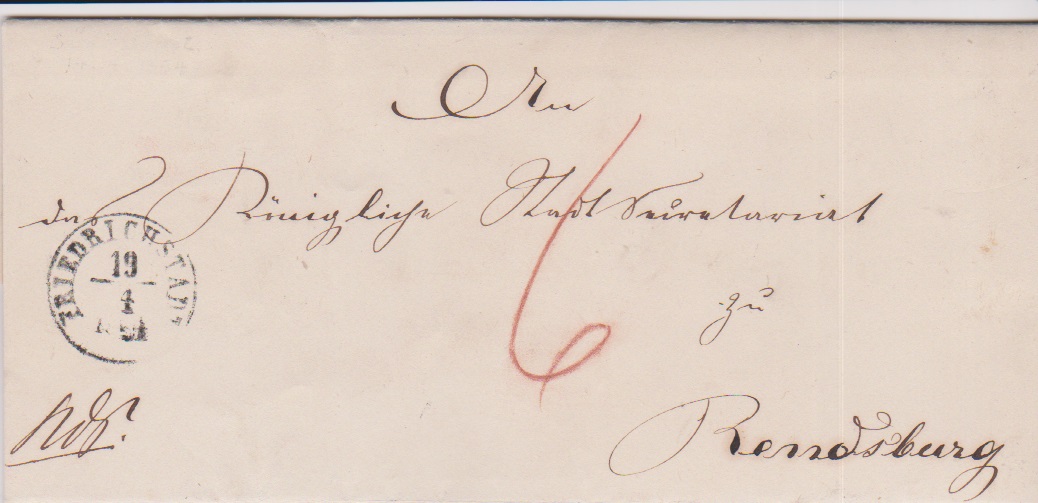 An
das Königliche Stadt Secretariat
FRIEDRICHSTADT
19
4
zu
6
Rendsburg